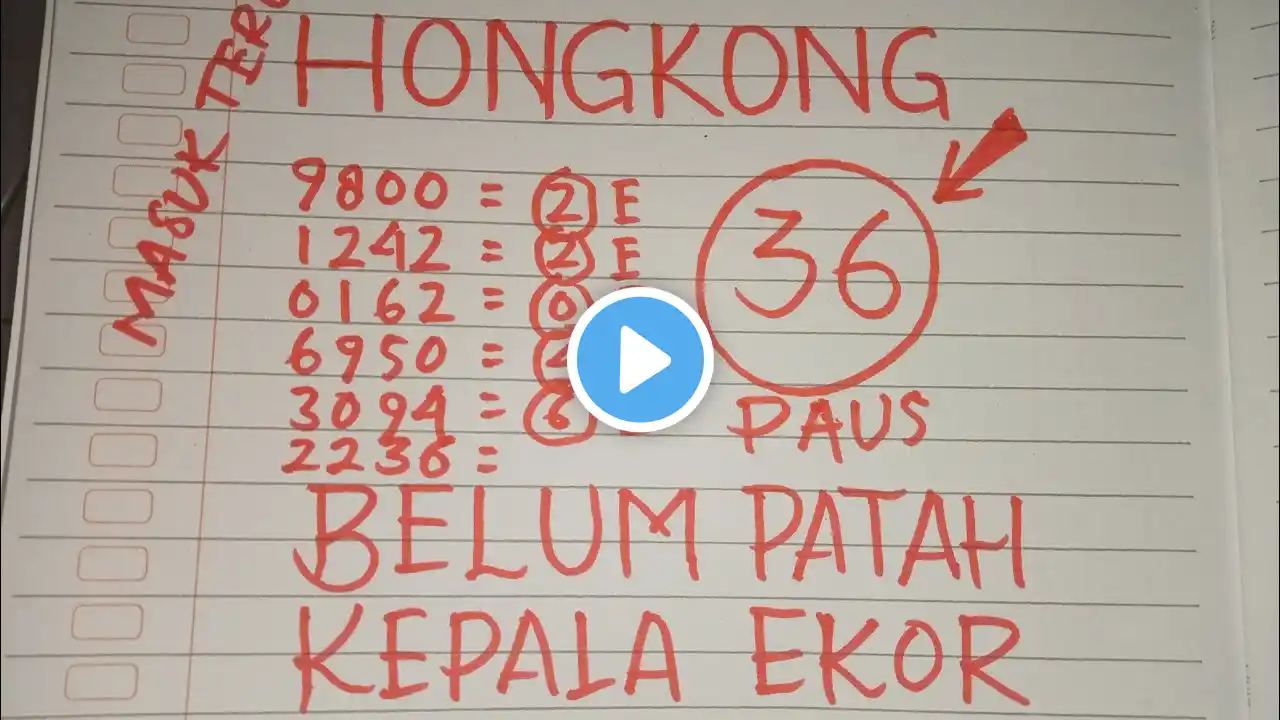 HONGKONG
MASUK
9800 = 2 E
1242 = 2 E
0162 = 0
6950 = 2
3094 = 6
2236 =
36
PAUS
BELUM PATAH
KEPALA EKOR